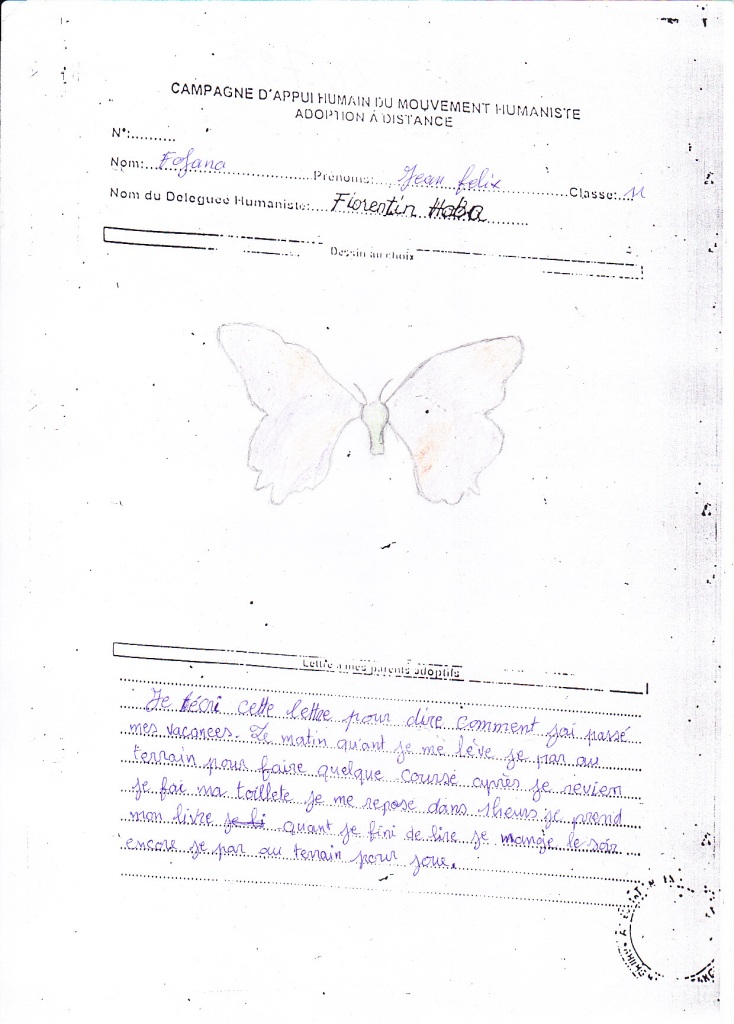 CAMPAGNE D'APPUI HUMAIN DU MOUVEMENT HUMANISTE
ADOPTION A DISTANCE
N°:..........
Nom:...Fofana...Prénoms:...Jean felix...Classe:...11
Nom du Deleguée Humaniste:...Florentin HaBa...
Dessin au choix
Lettre a mes parents adoptifs
Je técri cette lettre pour dire comment jai passé
mes vacances. Le matin qu'ant je me lève je par au
terrain pour faire quelque course après je revien
je fai ma toillete je me repose dans 1heurs je prend
mon livre je li quant je fini de lire je mange le soir
encore je par au terrain pour joue.